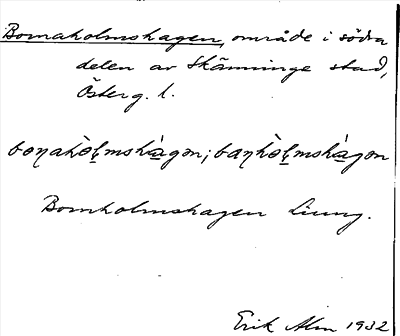 Bornaholmshagen, område i södra
delen av Skänninge stad,
Österg. l.
boṇahòḷmshàgən; baṇhòḷmshàgən
Bornholmshagen Ljung.
Erik Alm 1932